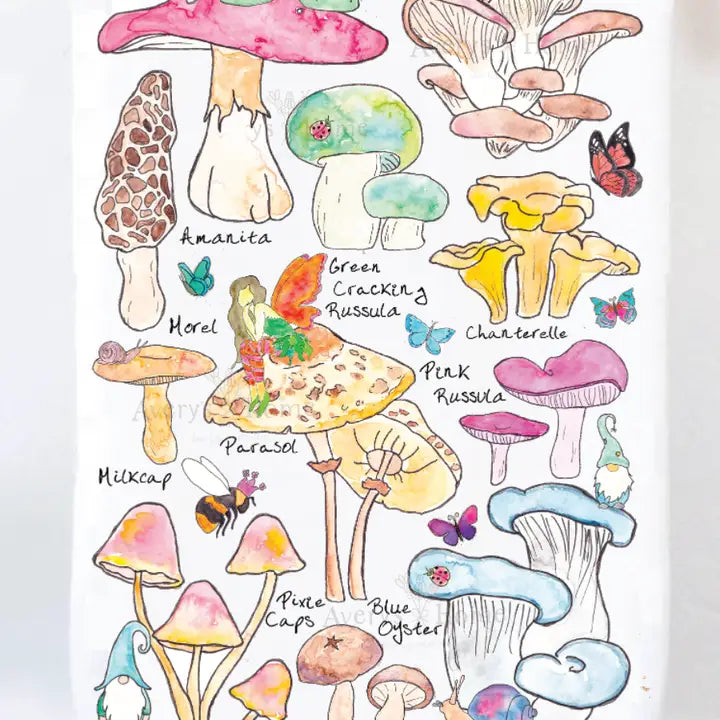 Amanita
Green
Cracking
Russula
Morel
Chanterelle
Pink
Russula
Parasol
Milkcap
Pixie
Caps
Blue
Oyster